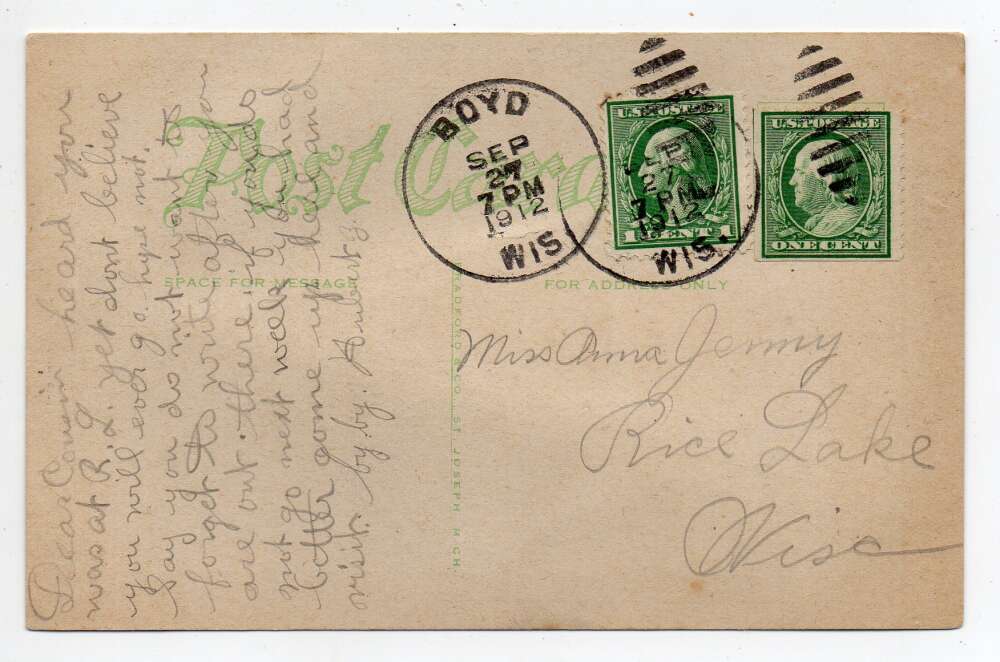 Post Card
SPACE FOR MESSAGE
FOR ADDRESS ONLY
BRADFORD & CO., ST. JOSEPH MICH.
BOYD
SEP
27
7 PM
1912
WIS.
SEP
27
7 PM
1912
WIS.
U.S. POSTAGE
1 CENT 1
U.S. POSTAGE
ONE CENT
Miss Anna Jenny
Rice Lake
Wisc
Dear Cousin heard you
was at R.L. yet dont believe
you will ever go. hope not.
Say you do not want to
forget to write after you
are out there if you do
not go next week you had
better come up here and
visit. by by. Hubert